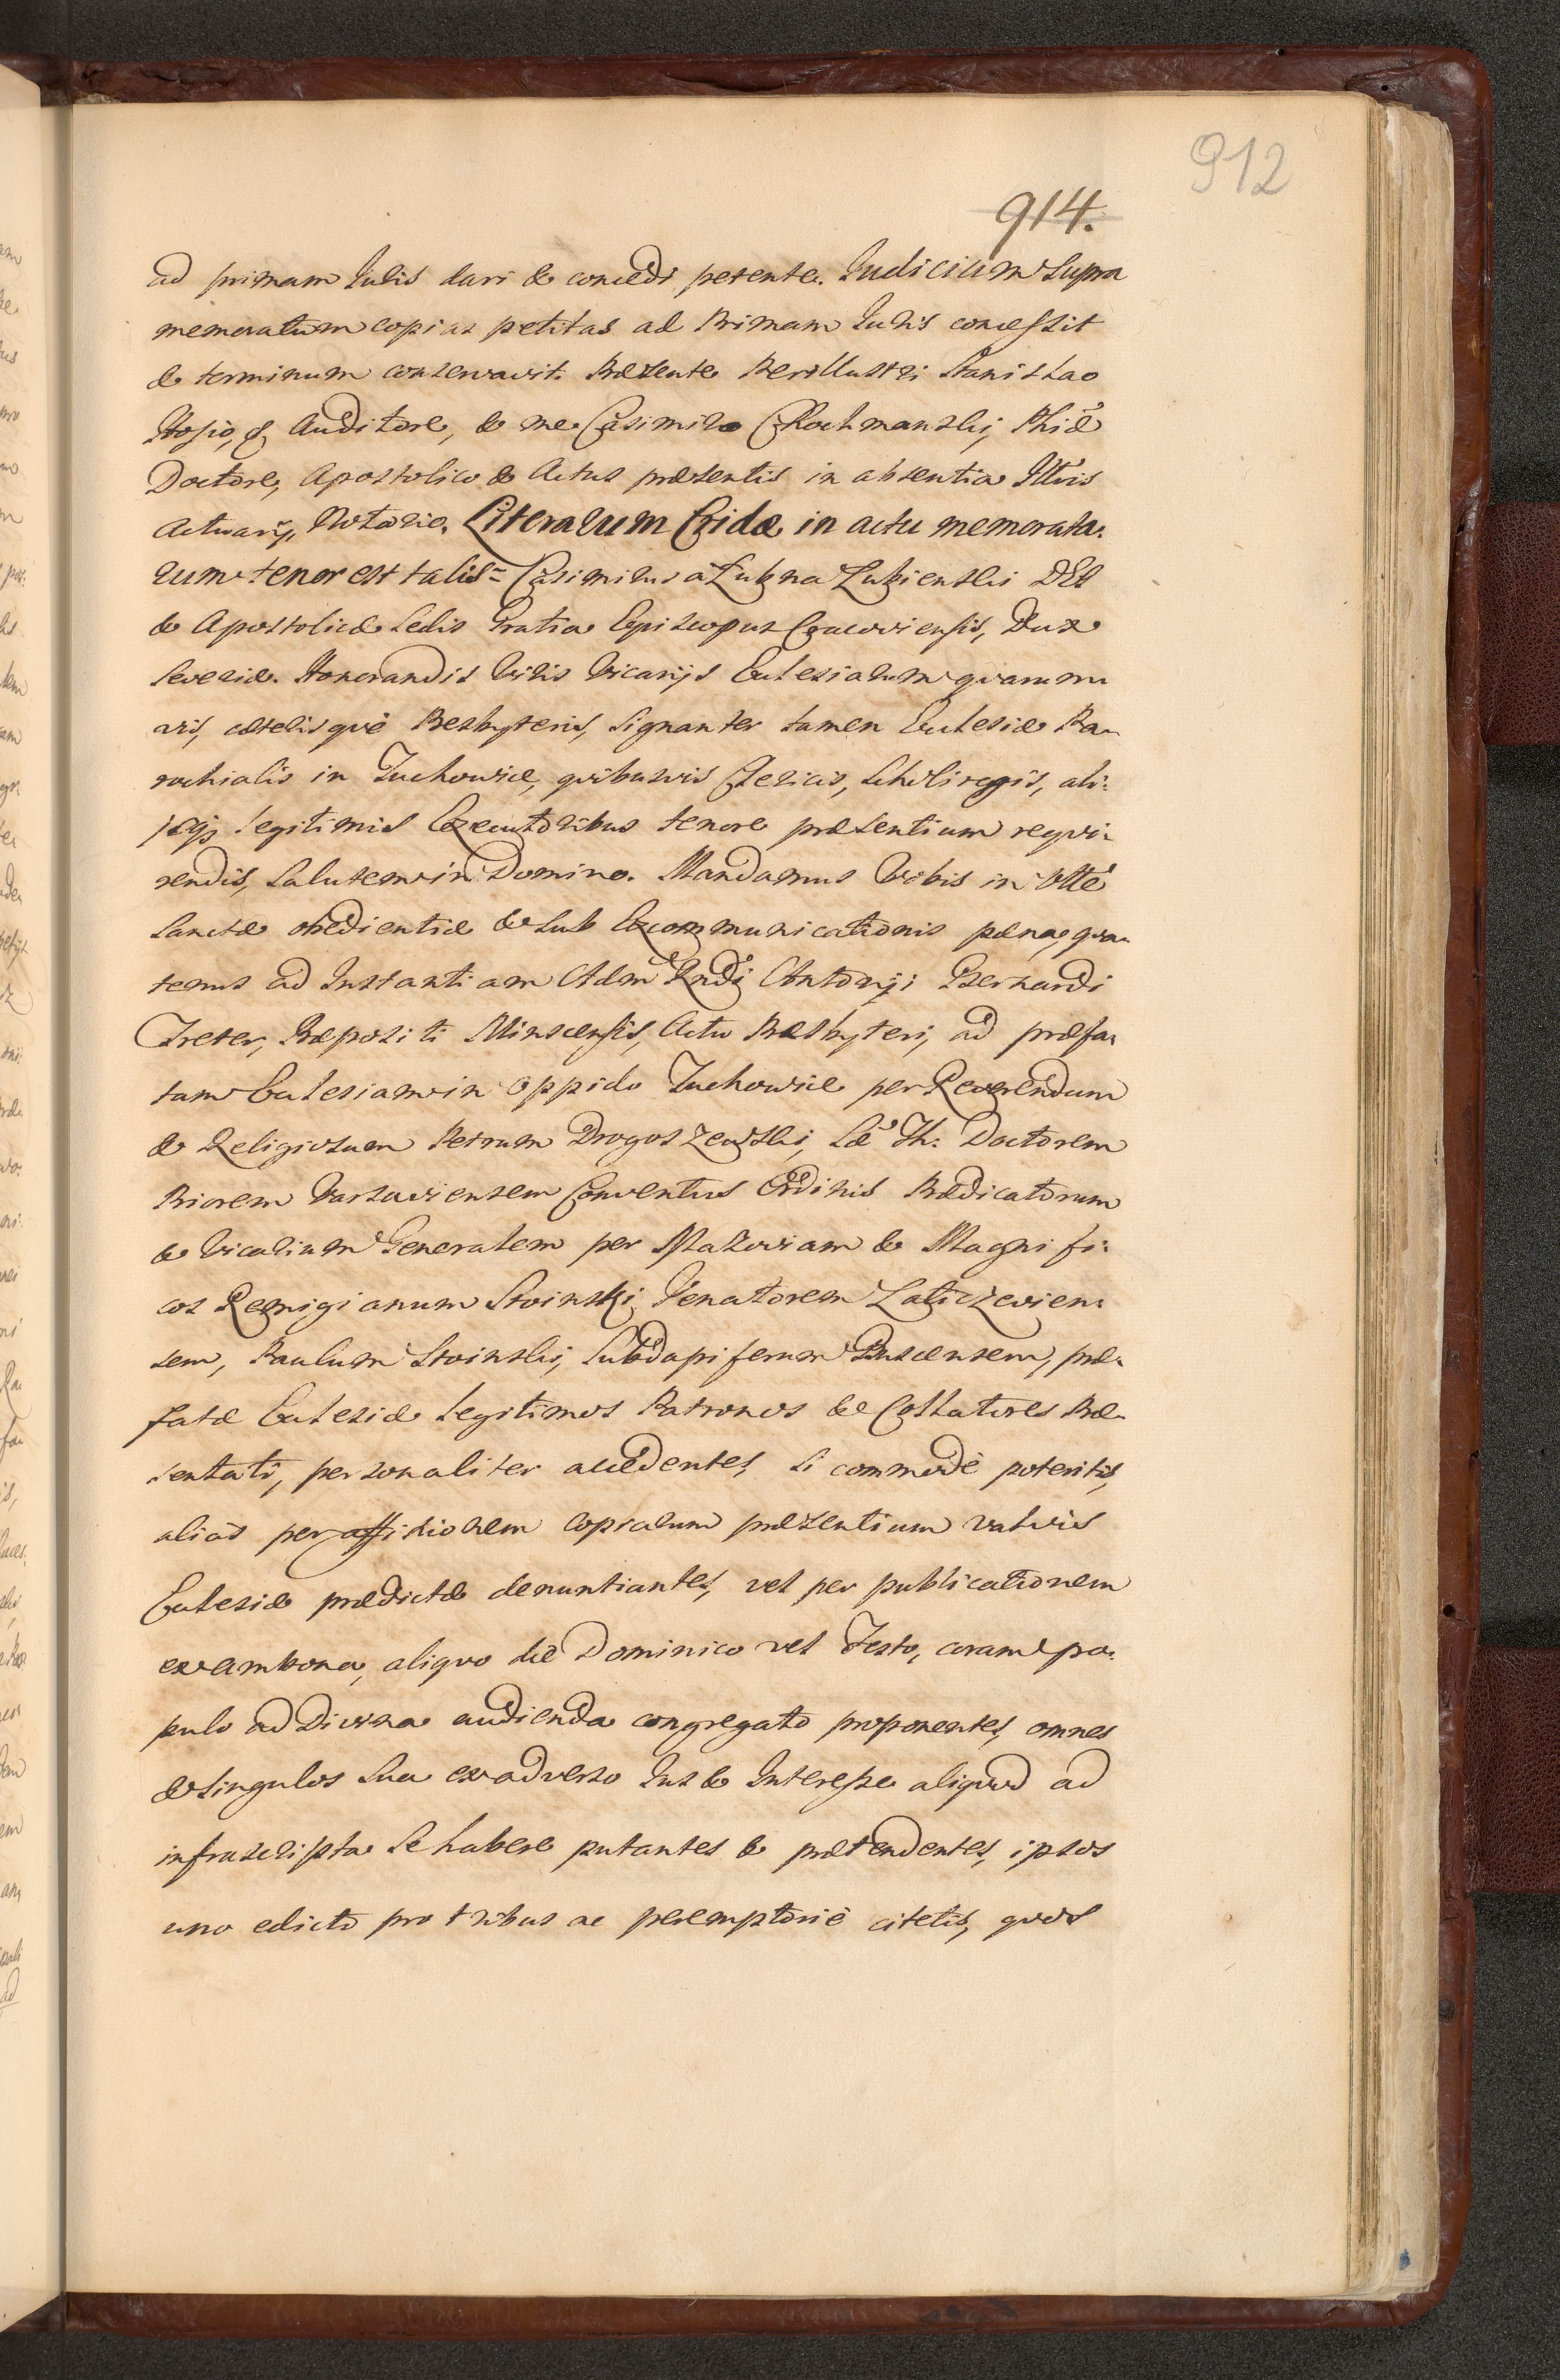 912
914.
ad primam Iuris dari & concedi petente. Iudicium Supra
memoratum copias petitas ad Primam Iuris concessit
& terminum conservavit. Præsente Perillustri Stanislao
Hosio, & Auditore, & me Casimiro Chochmanski, Phiæ
Doctore, Apostolico & Actus præsentis in absentia Illris
Actuarij, Notario. Literarum Cridæ in actu memorata:
rum tenor est talis = Casimirus a Łubna Łubienski DEI
& Apostolicæ Sedis Gratia Episcopus Cracoviensis, Dux
Severiæ. Honorandis Viris Vicarijs Ecclesiarum quarum
vis, cæterisquè Presbyteris, signanter tamen Ecclesiæ Pa-
rochialis in Żuchowice, quibusvis Clericis, Scholiregis, ali:
jsqz legitimis Executoribus tenore præsentium requi-
rendis, Salutem in Domino. Mandamus Vobis in Vtte
Sanctæ obedientiæ & sub Excommunicationis pæna, qua-
tenus ad Instantiam Adm Rndi Antonij Bernardi
Treter, Præpositi Minscensis, Actu Præsbyteri, ad præfa-
tam Ecclesiam in Oppido Żuchowice per Reverendum
& Religiosum Petrum Drogoszewski, Sæ Th: Doctorem
Priorem Varsaviensem Conventus Ordinis Prædicatorum
& Vicarium Generalem per Mazoviam & Magnifi:
cos Remigianum Stoinski Venatorem Laticzevien:
sem, Paulum Stoinski, Subdapiferum Buscensem, præ-
fatæ Ecclesiæ legitimos Patronos & Collatores Præ-
sentati, personaliter accedentes, si commodè poteritis,
aliàs per affixionem copiarum præsentium valvis
Ecclesiæ prædictæ denuntiantes, vel per publicationem
ex ambona, aliquo die Dominico vel Festo, coram po-
pulo ad Divina audienda congregato proponentes, omnes
& singulos sua ex adverso Ius & Interesse aliquod ad
infrascripta se habere putantes & prætendentes, ipsos
uno edicto pro tribus ac peremptoriè citetis, quos